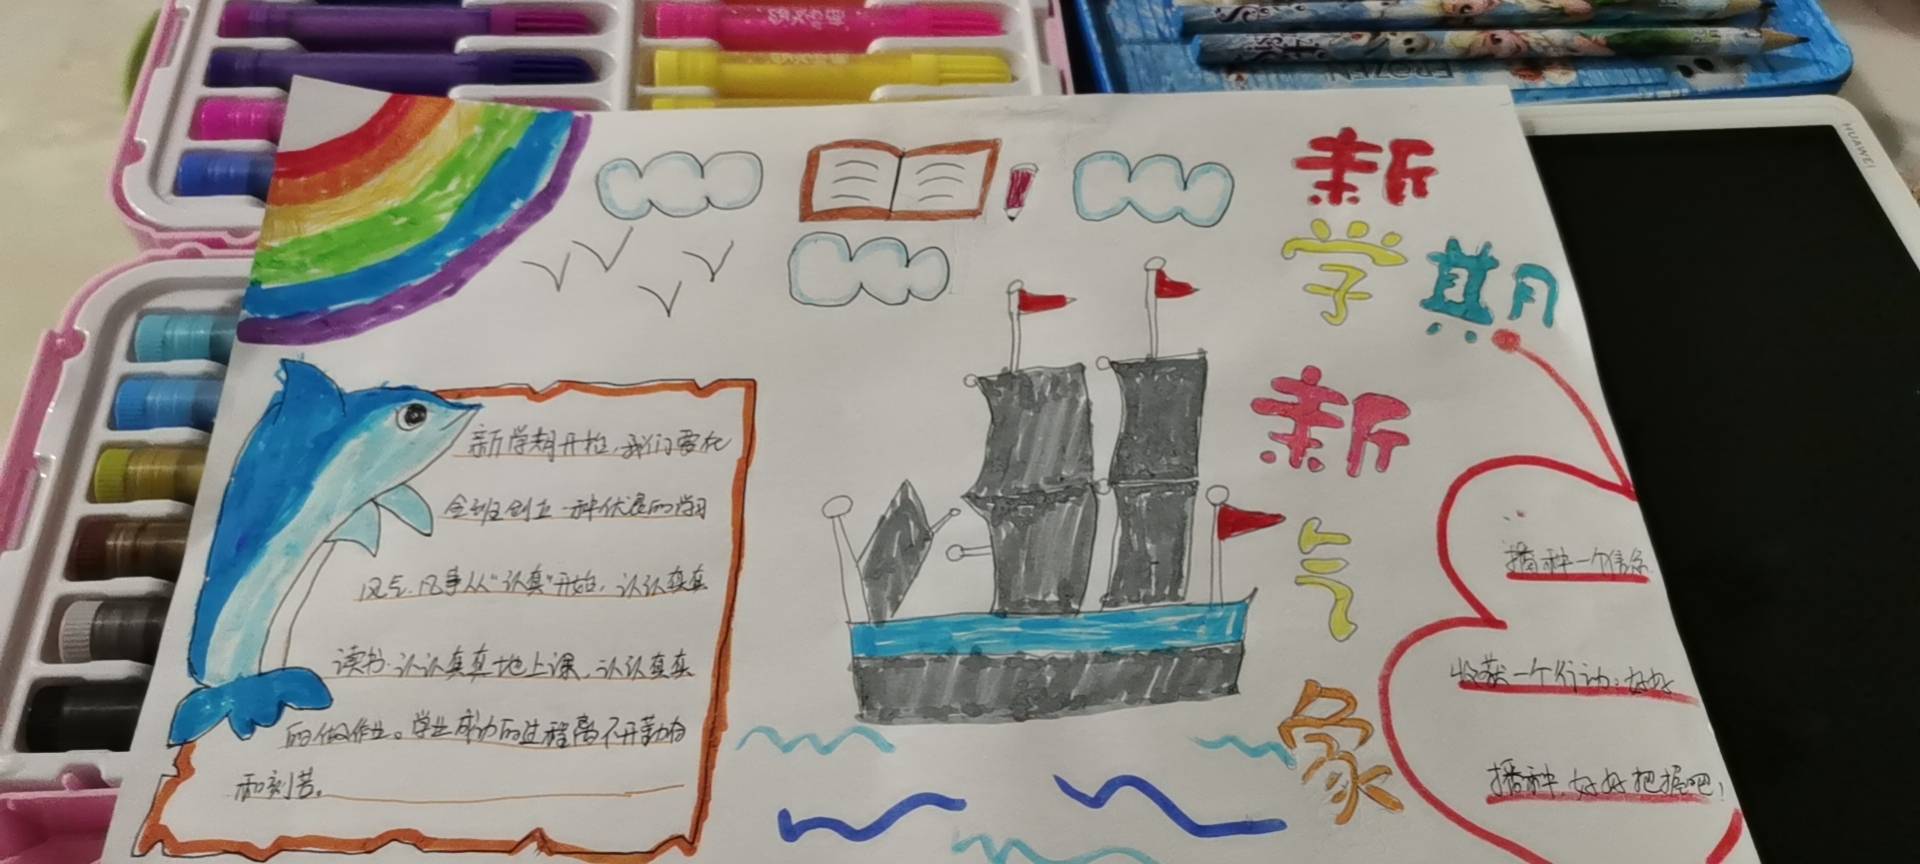 新学期新气象
新学期开始,我们要在
全班创立一种优良的学习
风气,凡事从“认真”开始,认认真真
读书,认认真真地上课,认认真真
的做作业。学业成功的过程离不开勤奋
和刻苦。
播种一个信念
收获一个行动:好好
播种,好好把握吧!
HUAWEI
FROZEN